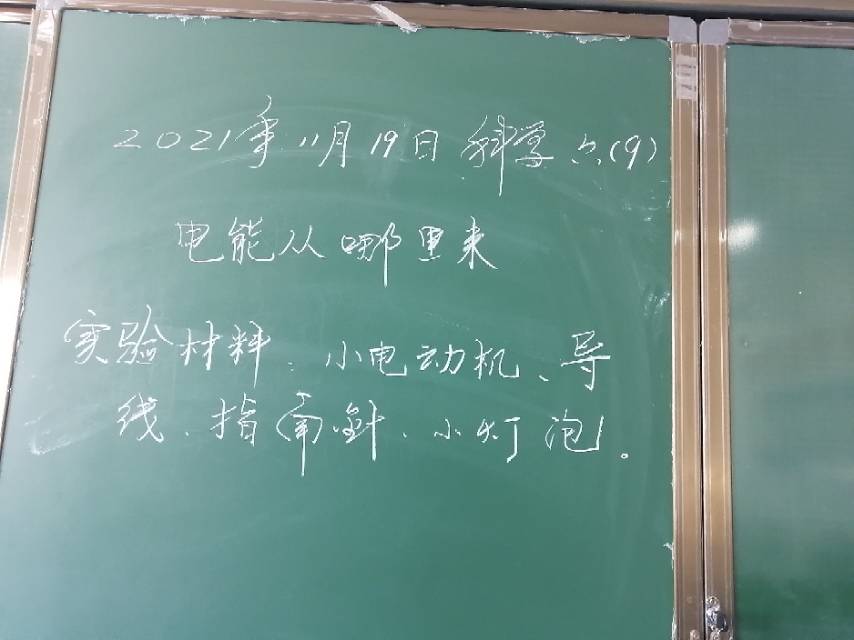 2021年11月19日 科学 六(9)
电能从哪里来
实验材料:小电动机、导
线、指南针、小灯泡。